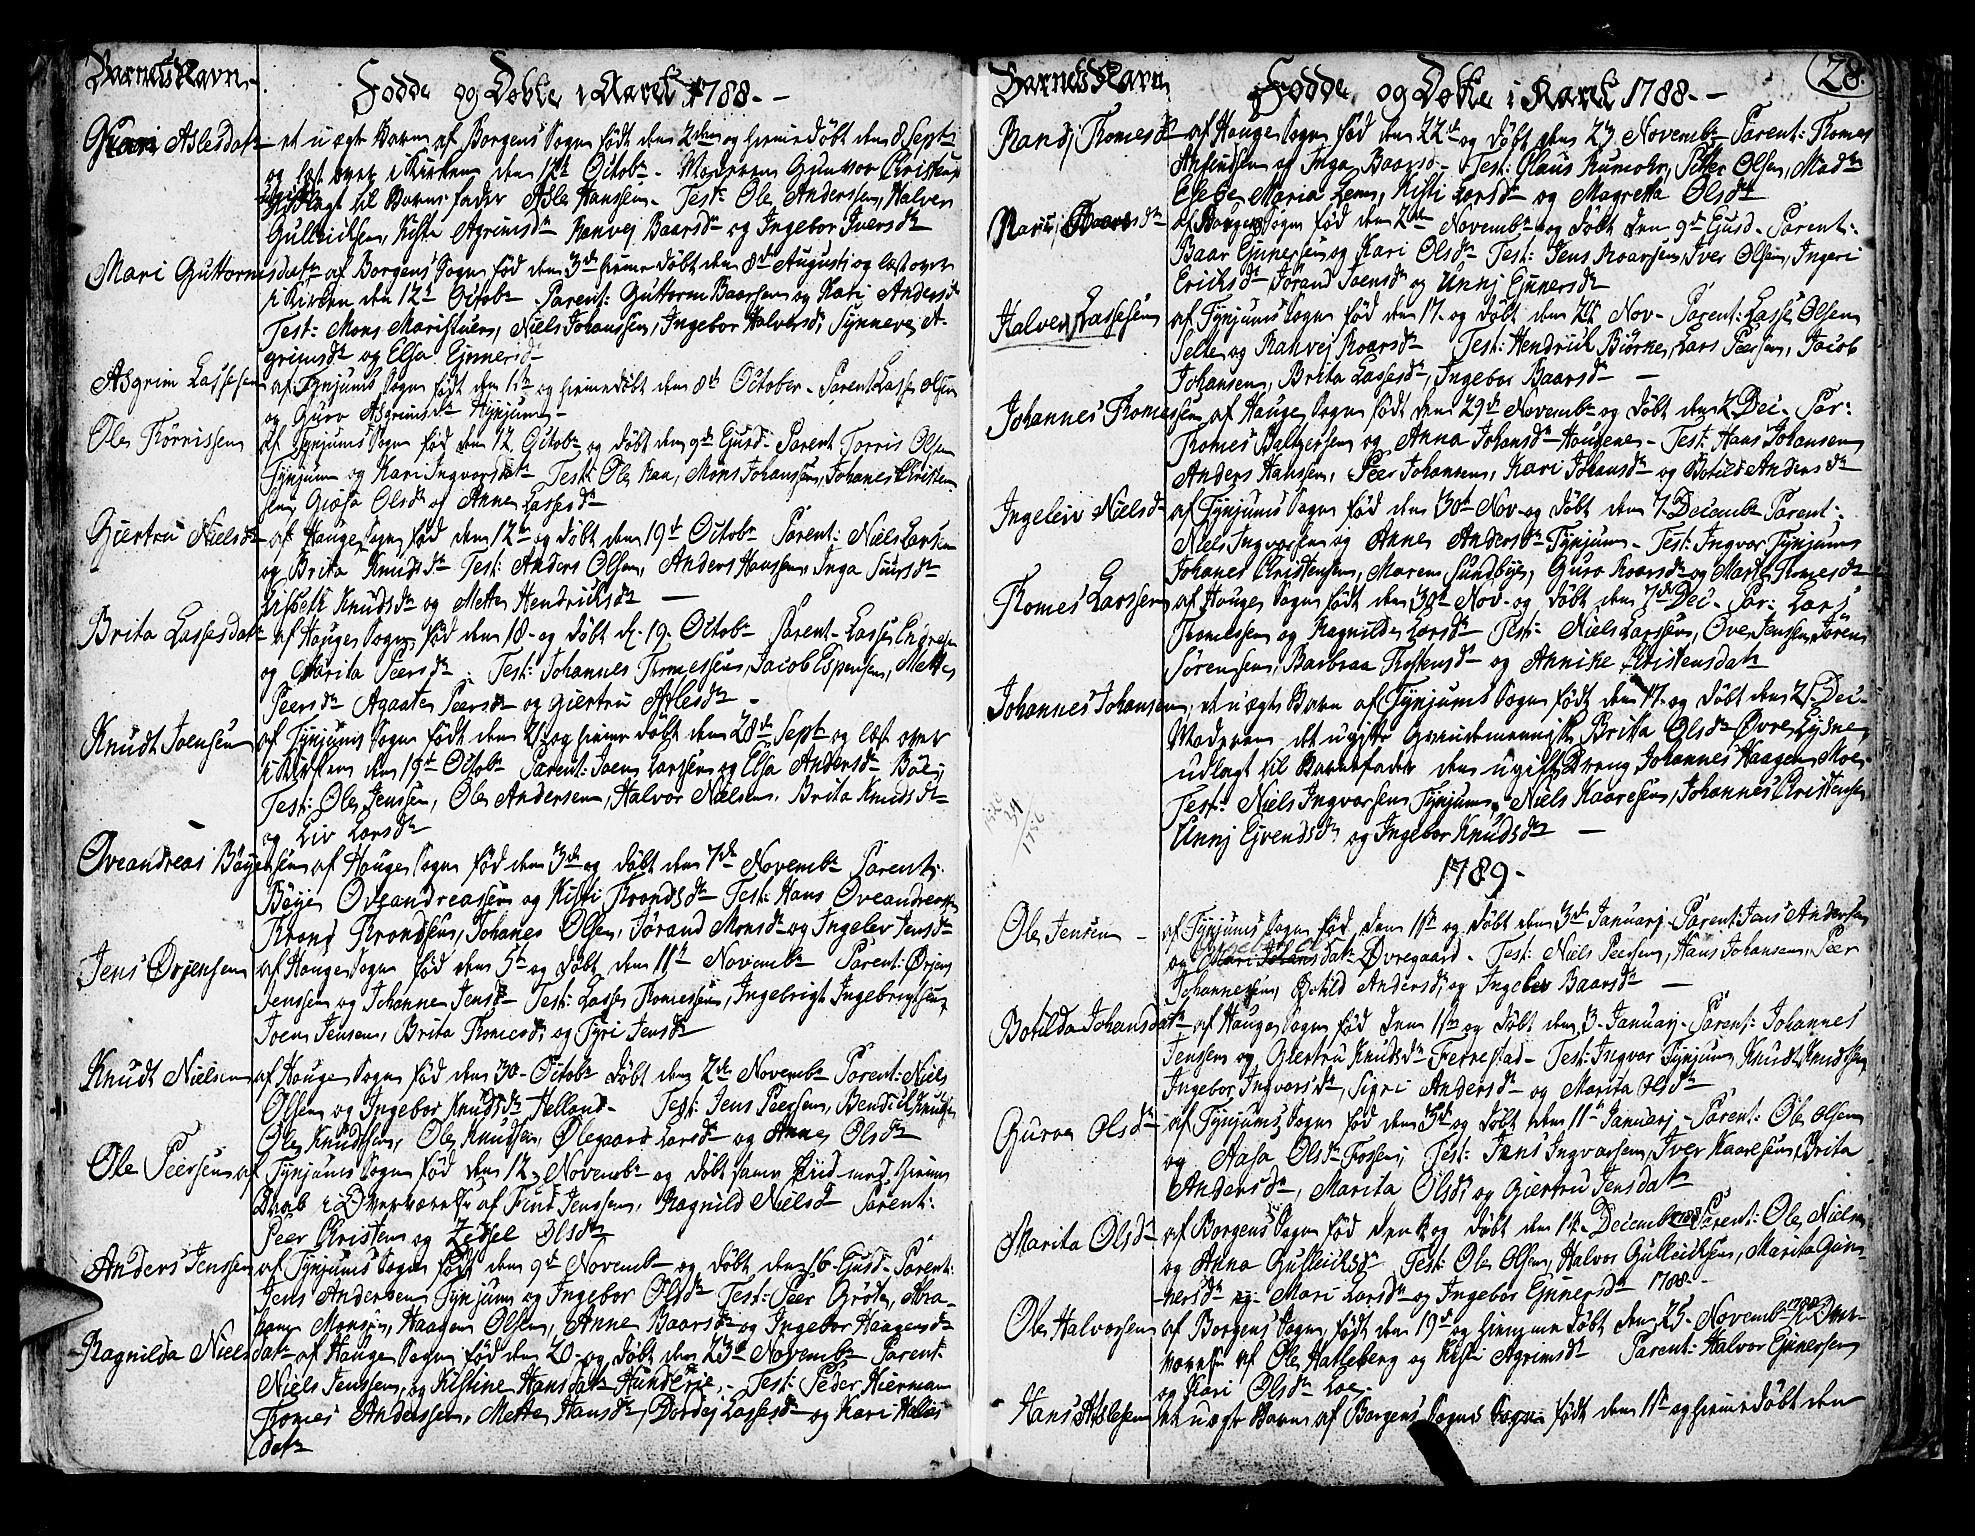 Barnets Navn
Fødde og Døbte i Aaret 1788.
Kari Aslesdatr et uægte Barn af Borgens Sogn født den 2den og hiemedøbt den 8 Septr
og læst over i Kirken den 12t Octobr Moderen Gunvor Christens
udlagt til Barnefader Asle Hanssen Test: Ole Anderssen, Halvor
Gulleichsen, Kista Agrimsdr Ranvej Baarsdr og Ingebor Iversdr
Mari Guttormsdatr af Borgens Sogn fød den 3de hiemedøbt den 8de Augusti og læst over
i Kirken den 12t Octobr Parent: Guttorm Baarsen og Kari Andersdr
Test: Mons Maristuen, Niels Johanssen, Ingebor Halversdr, Synneve A-
grimsdr og Elsa Ejnnersdr
Asgrim Lassesen af Tynjums Sogn født den 1ste og hiemedøbt den 8de October Parent Lasse Olsen
og Guro Asgrimsdr Tynjum
Ole Tørrissen af Tynjums Sogn fød den 12 Octobr og døbt den 9de Ejusd: Parent Torris Olsen
Tynjum og Kari Ingvorsdatr Test: Ole Raa, Mons Johanssen, Johanes Christen-
sen, Giøsa Olsdr og Anne Lassesdr
Giertru Nielsdr af Hauge Sogn fød den 12te og døbt den 19de Octobr Parent: Niels Larsen
og Brita Knudsdr Test: Anders Olsen, Anders Hanssen, Inga Siursdr
Lisbeth Knudsdr og Mette Hendrichsdr
Brita Lassesdatr af Hauge Sogn fød den 18 og døbt d. 19 Octobr Parent Lasse
og Marita Peersdr Test: Johannes Thomessen, Jacob Espensen, Mette
Peersdr Agaate Peersdr og Giertru Aslesdr
Knudt Joensen af Tynjums Sogn født den 21 og hiemedøbt den 28de Septr og læst over
i Kirken den 19de Octobr Parent: Joen Larssen og Elsa Andersdr Bøe
Test: Ole Jenssen, Ole Andersen, Halvor Nielsen, Brita Knudsdr
og Liv Larsdr
Oveandreas Bøyesen af Hauge Sogn fød den 3de og døbt den 7de Novembr Parent:
Bøye Oveandreassen og Kisti Trondsdr Test: Hans Oveandreas
Trond Trondsen, Johanes Olsen, Jørand Monsdr og Ingelev Jensdr
Jens Ørjensen af Hauge Sogn fød den 5te og døbt den 11te Novembr Parent: Ørjens
Jenssen og Johanne Jensdr Test: Lasse Thomessen, Ingebrigt Ingebrigtsen,
Joen Jensen, Brita Thomesdr og Tyri Jensdr
Knudt Nielsen af Hauge Sogn fød den 30 Octobr døbt den 2de Novembr Parent: Niels
Olsen og Ingebor Knudsdr Helland Test: Jens Peersen, Bendich Knudsen
Ole Knudssen, Ole Knudsen, Ølegaard Larsdr og Anne Olsdr
Ole Peersen af Tynjums Sogn fød den 12 Novembr og døbt samme med hieme
Daab i Overværelse af Find Jenssen, Ragnild Nielsdr Parent:
Peer Christens og Zidsel Olsdr
Anders Jensen af Tynjums Sogn født den 9de Novembr og døbt den 16 Ejusd Parent:
Jens Andersen Tynjum og Ingebor Olsdr Test: Peer Grøte, Abra-
ham Monsen, Haagen Olsen, Anne Baarsdr og Ingebor Haagensdr
Ragnilda Nielsdatr af Hauge Sogn fød den 20 og døbt den 23de Novembr Parent:
Niels Jenssen og Kistine Hansdatr Hunderie, Test: Peder Hierman
Thomes Anderssen, Mette Hansdr, Dordej Lassesdr og Kari
datr
Barnets Navn
Fødde og Døbte i Aaret 1788.
28
Randj Thomesdr af Hauge Sogn fød den 22de og døbt den 23 Novembr Parent: Thomes
Arfindsen og Inga Baarsdr Test: Claus Rumohr, Peter Olsen, Madme
Elebe Maria Lem, Kisti Larsdr og Magretta Olsdr
Mari Baarsdr af Borgens Sogn fød den 2de Novembr og døbt den 9de Ejusd. Parent:
Baar Ejnnersen og Kari Olsdr Test: Jens Roarsen, Iver Olsen, Ingeri
Ericksdr Jørand Joensdr og Unnj Ejnnersdr
Halver Lassesen af Tynjums Sogn fød den 17 og døbt den 20de Nov Parent: Lasse Olsen
Selte og Ranvej Roarsdr Test: Hendrich Biørke, Lars Peersen, Jacob
Johansen, Brita Lassesdr, Ingebor Baarsdr
Johannes Thomessen af Hauge Sogn født den 29de Novembr og døbt den 2 Dec. Par:
Thomes Baltzersen og Anna Johansdr Haugene Test: Hans Johansen
Anders Hanssen, Peer Johansen, Kari Johansdr og Botild Andersdr
Ingeleiv Nielsdr af Tynjums Sogn fød den 30de Nov og døbt den 7 Decembr Parent:
Niels Ingvorsen og Anne Andersdr Tynjum Test: Ingvor Tynjum
Johanes Christensen, Maren Sundbye, Guro Roarsdr og Marte Thomesdr
Thomes Larssen af Hauge Sogn født den 30te Nov og døbt den 7de Dec. Par: Lars
Thomessen og Ragnilde Larsdr Test: Niels Larssen, Ove Jenssen, Søren
Sørensen, Barbraa Thostensdr og Annike Christensdatr
Johannes Johansen, et uægte Barn af Tynjums Sogn født den 17 og døbt den 21 Dec
Moderen det ugifte Qvindemenniske Britta Olsdr Øvre Lysne
udlagt til Barnefader den ugifte Dreng Johannes Haagen Moe
Test: Niels Ingvorsen Tynjum, Niels Kaaresen, Johannes Christensen
Unnj Ejvendsdr og Ingebor Knudsdr
1789.
Ole Jensen af Tynjums Sogn fød den 1ste og døbt den 3de Januarj Parent: Jens Andersen
og datr Øvregaard Test: Niels Peersen, Hans Johansen, Peer
Johannesen, Botild Andersdr og Ingebor Baarsdr
Botilda Johansdatr af Hauge Sogn fød den 1ste og døbt den 3 Januarj Parent: Johannes
Jenssen og Giertru Knudsdr Ferrestad Test: Ingvor Tynjum, Knudt Knudsen
Ingebor Ingvorsdr, Sigri Andersdr og Marita Olsdr
Guroe Olsdr af Tynjums Sogn fød den 5te og døbt den 11te Januarj Parent: Ole Olsen
og Aasa Olsdr Fossen, Test: Jens Ingvorsen, Iver Kaaresen, Brita
Andersdr, Marita Olsdr og Giertru Jensdatr
Marita Olsdr af Borgens Sogn fød den og døbt den 14 Decembr 1788 Parent: Ole Niels
og Anna Gulleichsdr Test: Ole Olsen, Halvor Gulleichsen, Marita Gun-
nersdr og Mari Larsdr og Ingebor Ejnnersdr 1788
Ole Halvorsen af Borgens Sogn født den 19de og hiemme døbt den 25 Novembr 1788 i Over-
værelse af Ole Hatleberg og Kisti Agrimsdr Parent: Halvor Ejnersen
og Kari Olsdr Loe
Hans Aslesen et uægte Barn af Borgens Sogns Sogn født den 11te og hiemedøbt den